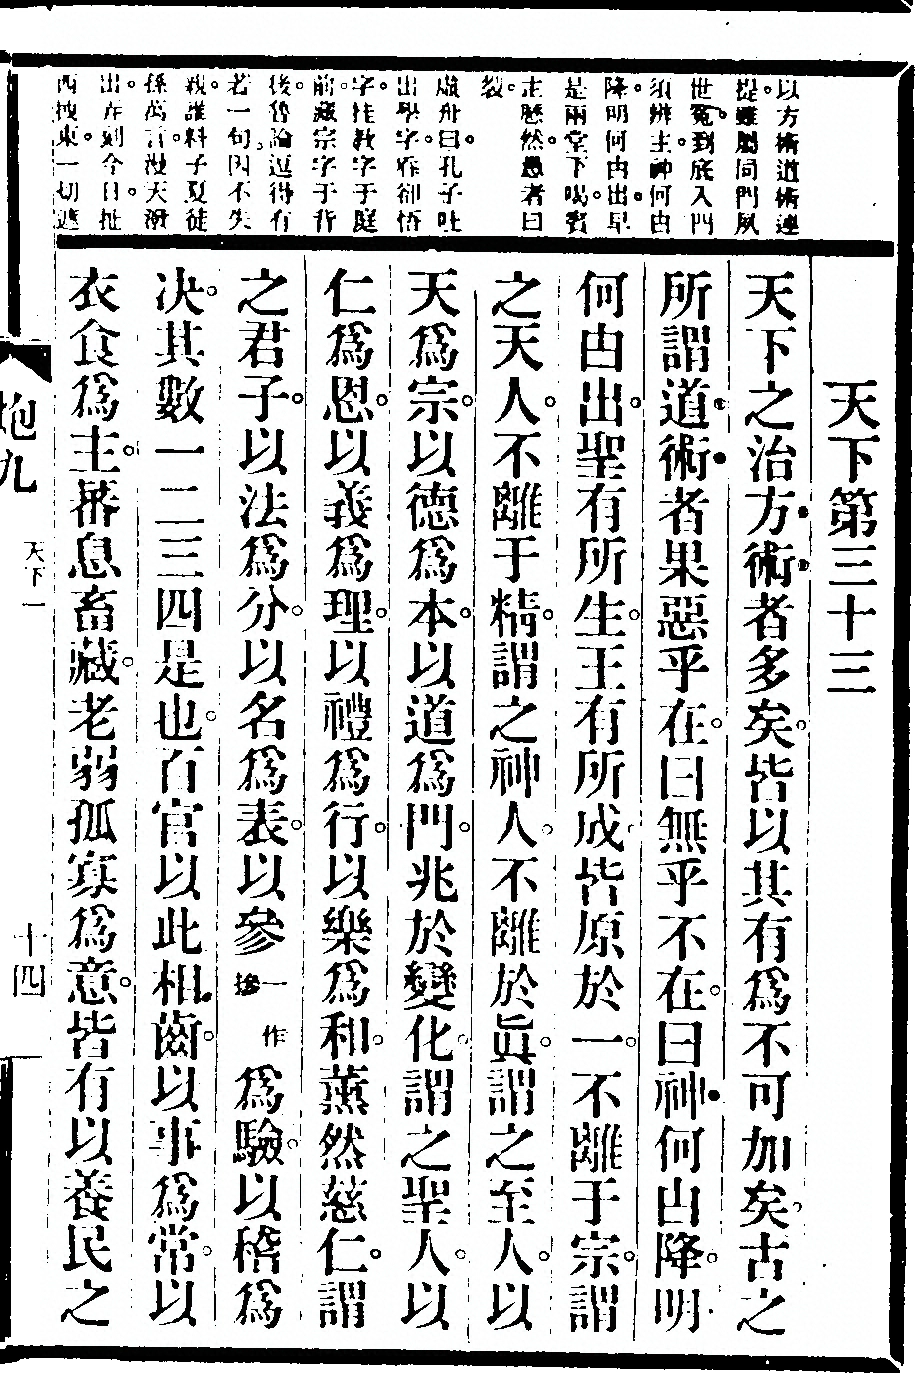 以方術道術連
提雖屬同門夙
世冤到底入門
須辨主神何由
降明何由出早
是兩堂下喝賓
主歷然愚者曰
裂
虛舟曰孔子吐
出學字雅卻悟
字拄教字于庭
前藏宗字于背
後魯論逗得有
若一句因不失
親護料子夏徒
孫萬言漫天潑
出在刻今日扯
西拽東一切遮
天下第三十三
天下之治方術者多矣皆以其有爲不可加矣古之
所謂道術者果惡乎在曰無乎不在曰神何由降明
何由出聖有所生王有所成皆原於一不離于宗謂
之天人不離于精謂之神人不離於眞謂之至人以
天爲宗以德爲本以道爲門兆於變化謂之聖人以
仁爲恩以義爲理以禮爲行以樂爲和薰然慈仁謂
之君子以法爲分以名爲表以參一作摻爲驗以稽爲
决其數一二三四是也百官以此相齒以事爲常以
衣食爲主蕃息畜藏老弱孤寡爲意皆有以養民之
炮九
天下一
十四